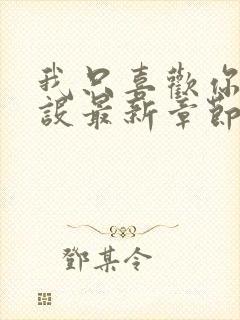 我只喜歡你
設最新章節
鄧某令